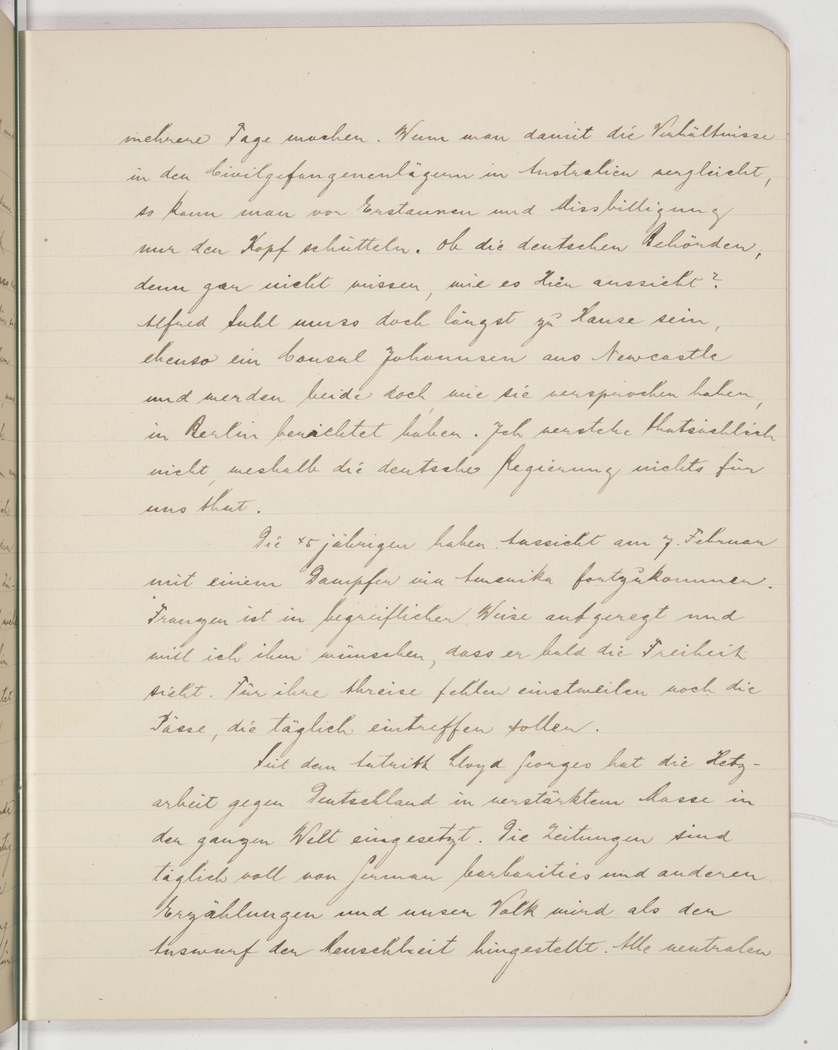 mehrere Tage machen. Wenn man damit die Verhältnisse
in den Civilgefangenenlägern in Australien vergleicht,
so kann man vor Erstaunen und Missbilligung
nur den Kopf schütteln. Ob die deutschen Behörden,
denn gar nicht wissen, wie es Hier aussieht?
Alfred Suhl muss doch längst zu Hause sein,
ebenso ein Consul Johannsen aus Newcastle
und werden beide doch, wie sie versprochen haben,
in Berlin berichtet haben. Ich verstehe thatsächlich
nicht, weshalb die deutsche Regierung nichts für
uns thut.
Die 45 jährigen haben Aussicht am 7. Februar
mit einem Dampfer via Amerika fortzukommen.
Franzen ist in begreiflicher Weise aufgeregt und
will ich ihm wünschen, dass er bald die Freiheit
sieht. Für ihre Abreise fehlen einstweilen noch die
Pässe, die täglich eintreffen sollen.
Seit dem Antritt Lloyd Georges hat die Hetz-
arbeit gegen Deutschland in verstärktem Masse in
der ganzen Welt eingesetzt. Die Zeitungen sind
täglich voll von German barbarities und anderen
Erzählungen und unser Volk wird als der
Auswurf der Menschheit hingestellt. Alle neutralen